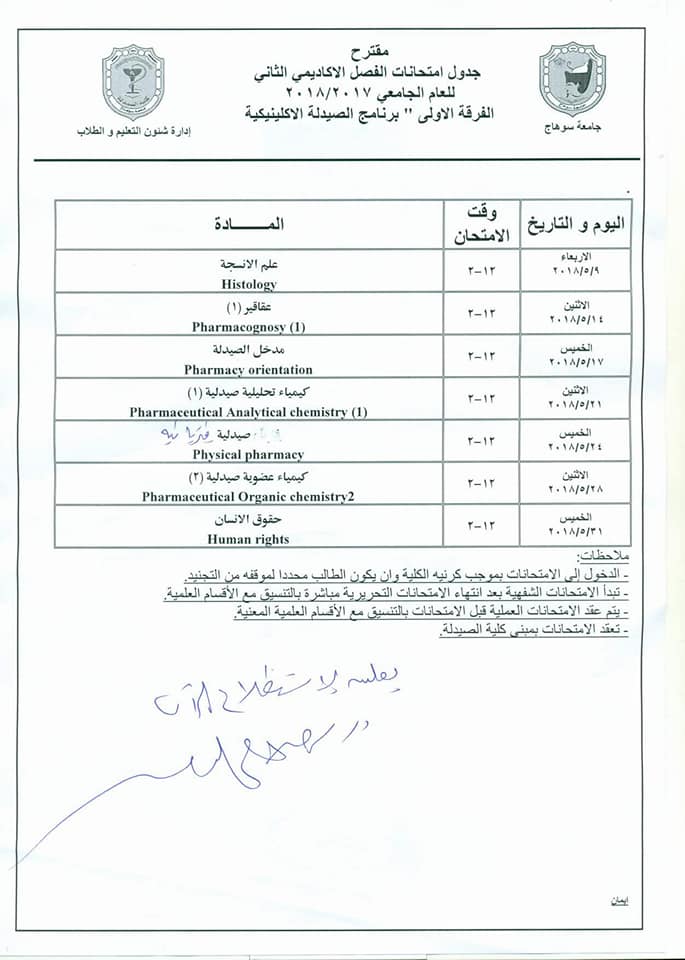 مقترح
جدول امتحانات الفصل الاكاديمي الثاني
للعام الجامعي ٢٠١٨/٢٠١٧
الفرقة الاولى " برنامج الصيدلة الاكلينيكية
جامعة سوهاج
إدارة شئون التعليم و الطلاب
اليوم و التاريخ
وقت الامتحان
المـــــادة
الاربعاء
٢٠١٨/٥/٩
٢-١٢
علم الانسجة
Histology
الاثنين
٢٠١٨/٥/١٤
٢-١٢
عقاقير (١)
Pharmacognosy (1)
الخميس
٢٠١٨/٥/١٧
٢-١٢
مدخل الصيدلة
Pharmacy orientation
الاثنين
٢٠١٨/٥/٢١
٢-١٢
كيمياء تحليلية صيدلية (١)
Pharmaceutical Analytical chemistry (1)
الخميس
٢٠١٨/٥/٢٤
٢-١٢
صيدلية فيزيائية
Physical pharmacy
الاثنين
٢٠١٨/٥/٢٨
٢-١٢
كيمياء عضوية صيدلية (٢)
Pharmaceutical Organic chemistry2
الخميس
٢٠١٨/٥/٣١
٢-١٢
حقوق الانسان
Human rights
ملاحظات:
- الدخول إلى الامتحانات بموجب كرنيه الكلية وان يكون الطالب محددا لموقفه من التجنيد.
- تبدأ الامتحانات الشفهية بعد انتهاء الامتحانات التحريرية مباشرة بالتنسيق مع الأقسام العلمية.
- يتم عقد الامتحانات العملية قبل الامتحانات بالتنسيق مع الأقسام العلمية المعنية.
- تعقد الامتحانات بمبنى كلية الصيدلة.
ايمان